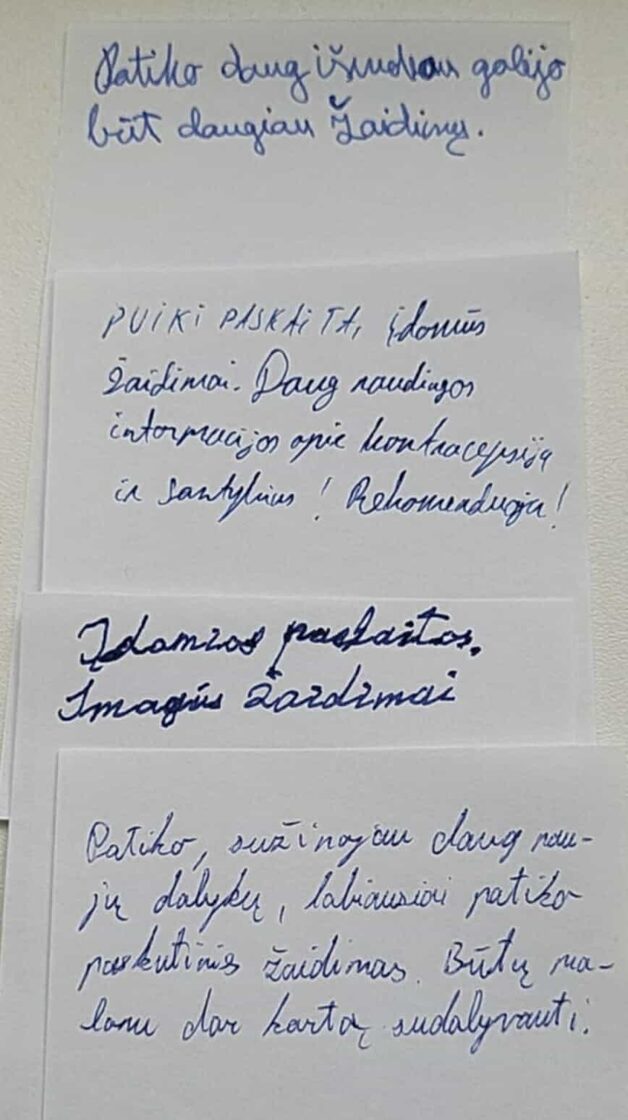 Patiko daug išmokau galėjo
būt daugiau žaidimų.
PUIKI PASKAITA, įdomūs
žaidimai. Daug naudingos
informacijos apie kontracepciją
ir santykius! Rekomenduoju!
Įdomios paskaitos.
Smagūs žaidimai
Patiko, sužinojau daug nau-
jų dalykų, labiausiai patiko
paskutinis žaidimas. Būtų ma-
lonu dar kartą sudalyvauti.